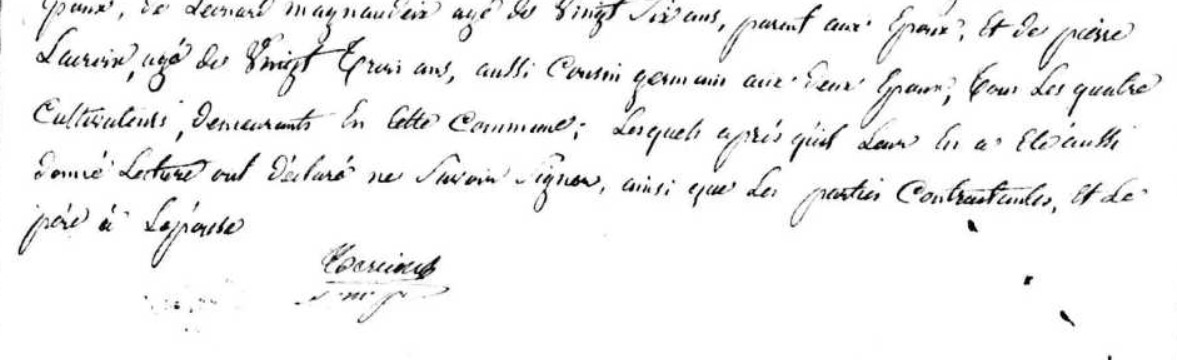 Epoux, de Leonard magnaudeix agé de Vingt Six ans, parent aux Epoux, Et de pierre
Lauroix, agé de Vingt Trois ans, aussi Cousin germain aux deux Epoux, Tous Les quatre
Cultivateurs, demeurants En Cette Commune; Lesquels après qu'il Leur En a Eté aussi
donné Lecture ont déclaré ne Savoir Signer, ainsi que Les parties Contractantes, Et Le
père à Lépouse